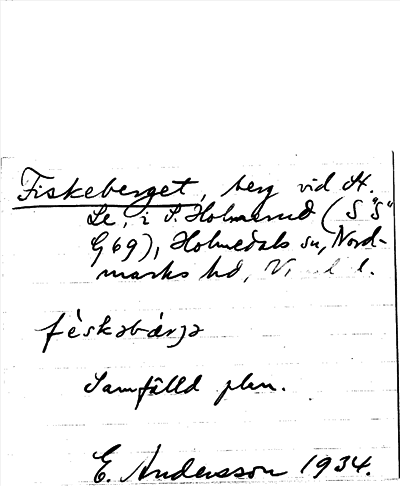 Fiskeberget, berg vid St.
Le, i S. Holmerud (S "S"
G69), Holmedals sn, Nord-
marks hd, V
fèskəbárjə
Samfälld plan.
E. Andersson 1934.